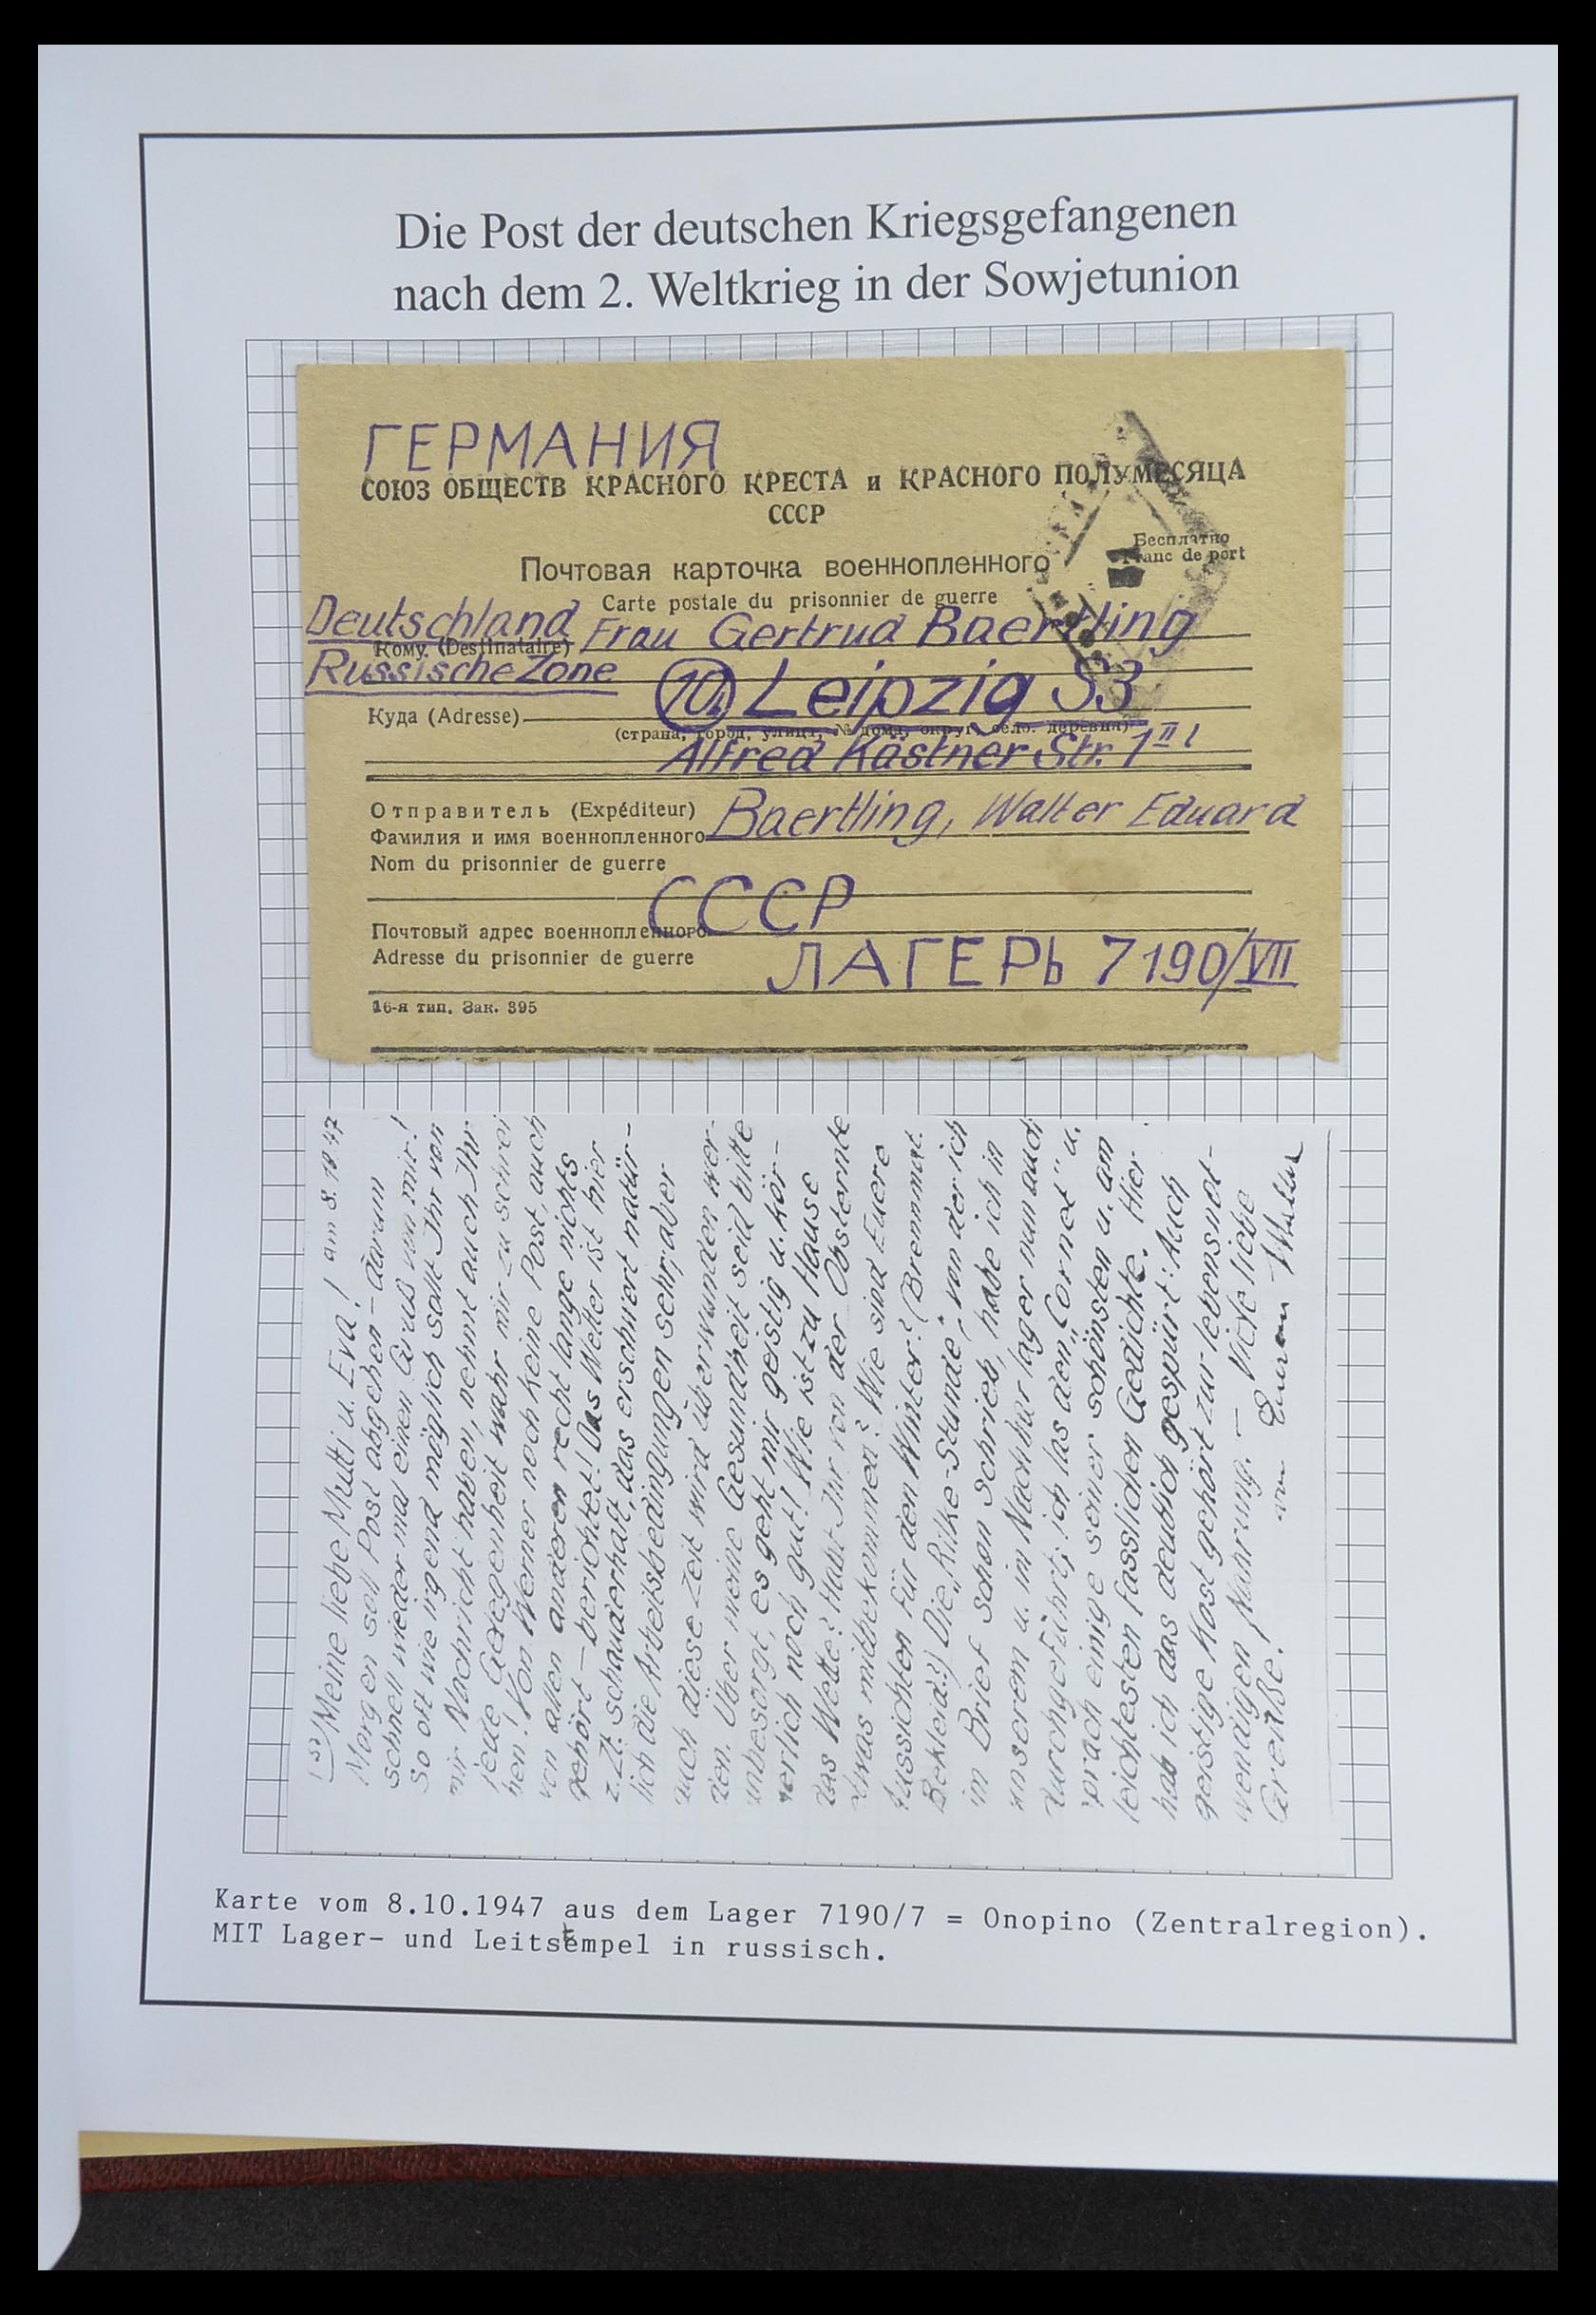 Die Post der deutschen Kriegsgefangenen
nach dem 2. Weltkrieg in der Sowjetunion
ГЕРМАНИЯ
СОЮЗ ОБЩЕСТВ КРАСНОГО КРЕСТА и КРАСНОГО ПОЛУМЕСЯЦА
СССР
Бесплатно
Franc de port
Почтовая карточка военнопленного
Carte postale du prisonnier de guerre
Deutschland
Кому (Destinataire) Frau Gertrud Baertling
Russische Zone
Куда (Adresse) (10) Leipzig S3
(страна, город, улица, № дома, округ, село, деревня)
Alfred Kästner Str. 1 II l
Отправитель (Expéditeur)
Фамилия и имя военнопленного Baertling, Walter Eduard
Nom du prisonnier de guerre
СССР
Почтовый адрес военнопленного
Adresse du prisonnier de guerre ЛАГЕРЬ 7190/VII
16-я тип. Зак. 395
15) Meine liebe Mutti u. Eva! am 8.10.47
Morgen soll Post abgehen – darum
schnell wieder mal einen Gruß von mir!
So oft wie irgend möglich sollt Ihr von
mir Nachricht haben, nehmt auch Ihr
jede Gelegenheit wahr mir zu schrei
ben! Von Werner noch keine Post, auch
von allen anderen recht lange nichts
gehört – berichtet! Das Wetter ist hier
z.Zt. schauderhaft, das erschwert natür-
lich die Arbeitsbedingungen sehr, aber
auch diese Zeit wird überwunden wer-
den. Über meine Gesundheit seid bitte
unbesorgt, es geht mir geistig u. kör-
perlich noch gut! Wie ist zu Hause
das Wetter? Habt Ihr von der Obsternte
etwas mitbekommen? Wie sind Euere
Aussichten für den Winter? (Brennmat.
Bekleid.?) Die „Rilke-Stunde", von der ich
im Brief schon schrieb, habe ich in
unserem u. im Nachbarlager nun auch
durchgeführt; ich las den „Cornet" u.
sprach einige seiner schönsten u. am
leichtesten fasslichen Gedichte. Hier
hab ich das deutlich gespürt: Auch
geistige Kost gehört zur lebensnot-
wendigen Nahrung. – Viele liebe
Grüße! Euer Walter
Karte vom 8.10.1947 aus dem Lager 7190/7 = Onopino (Zentralregion).
MIT Lager- und Leitstempel in russisch.